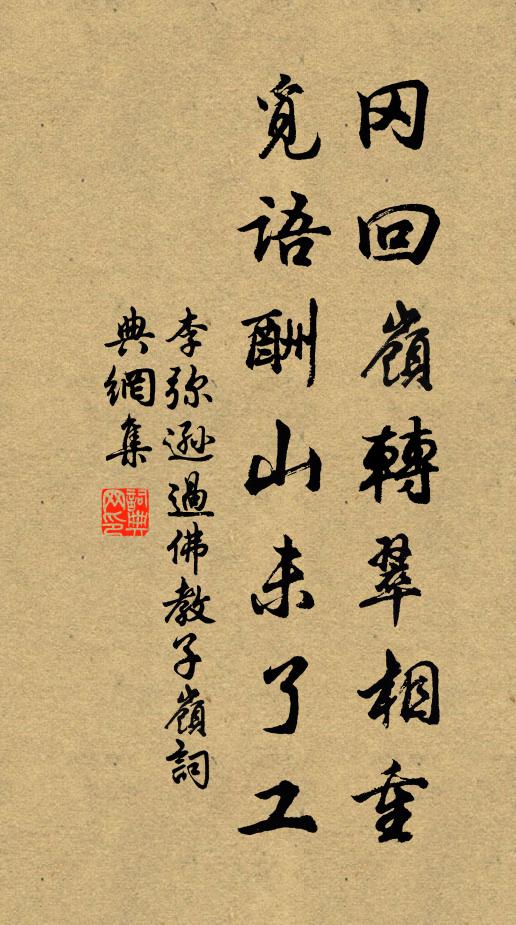 冈回嶺轉翠相重
覓語酬山未了工
李弥遜過佛教子嶺詞
典網集
詞典网印